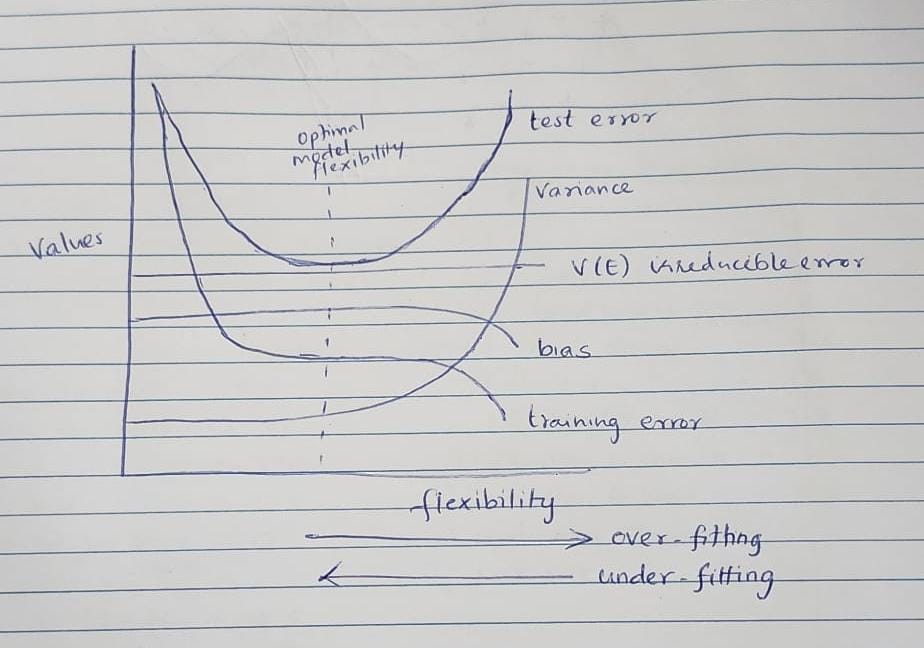 optimal
model
flexibility
test error
variance
Values
V(E) irreducible error
bias
training error
flexibility
over-fitting
under-fitting